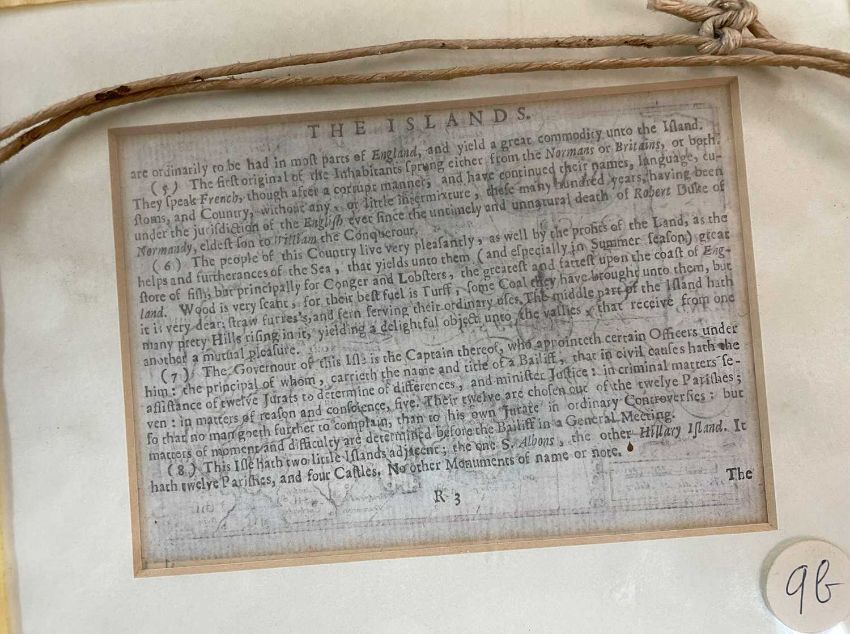 THE ISLANDS.
are ordinarily to be had in moſt parts of England, and yield a great commodity unto the Iſland.
(5) The firſt original of the Inhabitants ſprung either from the Normans or Britains, or both.
They ſpeak French, though after a corrupt manner, and have continued their names, language, cu-
ſtoms, and Country, without any, or little intermixture, theſe many hundred years, having been
under the juriſdiction of the Engliſh ever ſince the untimely and unnatural death of Robert Duke of
Normandy, eldeſt ſon to William the Conquerour.
(6) The people of this Country live very pleaſantly, as well by the profits of the Land, as the
helps and furtherances of the Sea, that yields unto them (and eſpecially in Summer ſeaſon) great
ſtore of fiſh, but principally for Conger and Lobſters, the greateſt and fatteſt upon the coaſt of Eng-
land. Wood is very ſcant, for their beſt fuel is Turff, ſome Coal they have brought unto them, but
it is very dear; ſtraw furres's, and fern ſerving their ordinary uſes. The middle part of the Iſland hath
many pretty Hills riſing in it, yielding a delightful object unto the vallies, that receive from one
another a mutual pleaſure.
(7) The Governour of this Iſle is the Captain thereof, who appointeth certain Officers under
him: the principal of whom, carrieth the name and title of a Bailiff, that in civil cauſes hath the
aſſiſtance of twelve Jurats to determine of differences, and miniſter Juſtice: in criminal matters ſe-
ven: in matters of reaſon and conſcience, five. Their twelve are choſen out of the twelve Pariſhes;
ſo that no man goeth further to complain, than to his own Jurate in ordinary Controverſies: but
matters of moment and difficulty are determined before the Bailiff in a General Meeting.
(8) This Iſle hath two little Iſlands adjacent; the one S. Albons, the other Hillary Iſland. It
hath twelve Pariſhes, and four Caſtles. No other Monuments of name or note.
The
R 3
9b